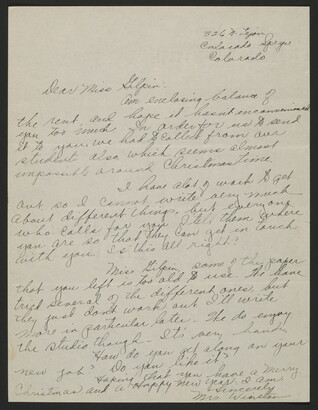 326 N Tejon
Colorado Spgs
Colorado.
Dear Miss Gilpin:
Am enclosing balance of
the rent, and hope it hasn't inconvenienced
you too much. In order for us to send
it to you, we had to collect from our
student also which seems almost
impossible around Christmas time.
I have alot of work to get
out so I cannot write very much
about different things, but everyone
who calls for you I tell them where
you are so that they can get in touch
with you. Is this all right?
Miss Gilpin, some of the paper
that you left is too old to use. We have
tried several of the different ones, but
they just don't work but I'll write
more in particular later. We do enjoy
the studio though - It's very handy.
How do you get along on your
new job? Do you like it?
Hoping that you have a Merry
Christmas and a Happy new year. I am
Sincerely
Mrs Winston